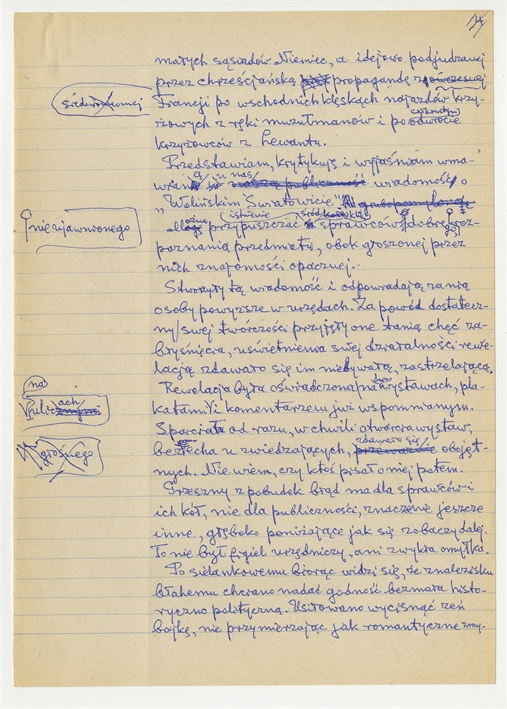 małych sąsiadów Niemiec, a idejowo podjudzanej
przez chrześcijańską propagandę
Francji po wschodnich klęskach najazdów krzy-
żowych z ręki muzułmanów i po odwrocie
krzyżowców z Lewantu.
Przedstawiam, krytykuję i wyjaśniam wma-
wianą u nas wiadomość o
"Wolińskim Światowicie".
przypuszczać istnienie sprawców dobrego roz-
poznania przedmiotu, obok głoszonej przez
nich znajomości opacznej.
Stworzyły tą wiadomość i odpowiadają za nią
osoby powyższe w urzędach. Za powód dostatecz-
ny swej twórczości przyjęły one tanią chęć za-
błyśnięcia, uświetnienia swej działalności rewe-
lacją zdawało się im niebywałą, zastrzelającą.
Rewelacja była oświadczona na wystawach, pla-
katami i komentarzem już wspomnianym.
od razu, w chwili otwarcia wystaw,
bezecha u zwiedzających, zdawało się obojęt-
nych. Nie wiem, czy ktoś pisał o niej potem.
Grzeszny z pobudek błąd ma dla sprawców i
ich kół, nie dla publiczności, znaczenie jeszcze
inne, głęboko poniżające jak się zobaczy dalej.
To nie był figiel urzędniczy, ani zwykła omyłka.
Po sielankowemu biorąc widzi się, że znalezisku
błahemu chciano nadać godność bezmała histo-
ryczno polityczną. Usiłowano wycisnąć zeń
bajkę, nie przymierzając jak romantyczne zmy-
nieujawnionego
na